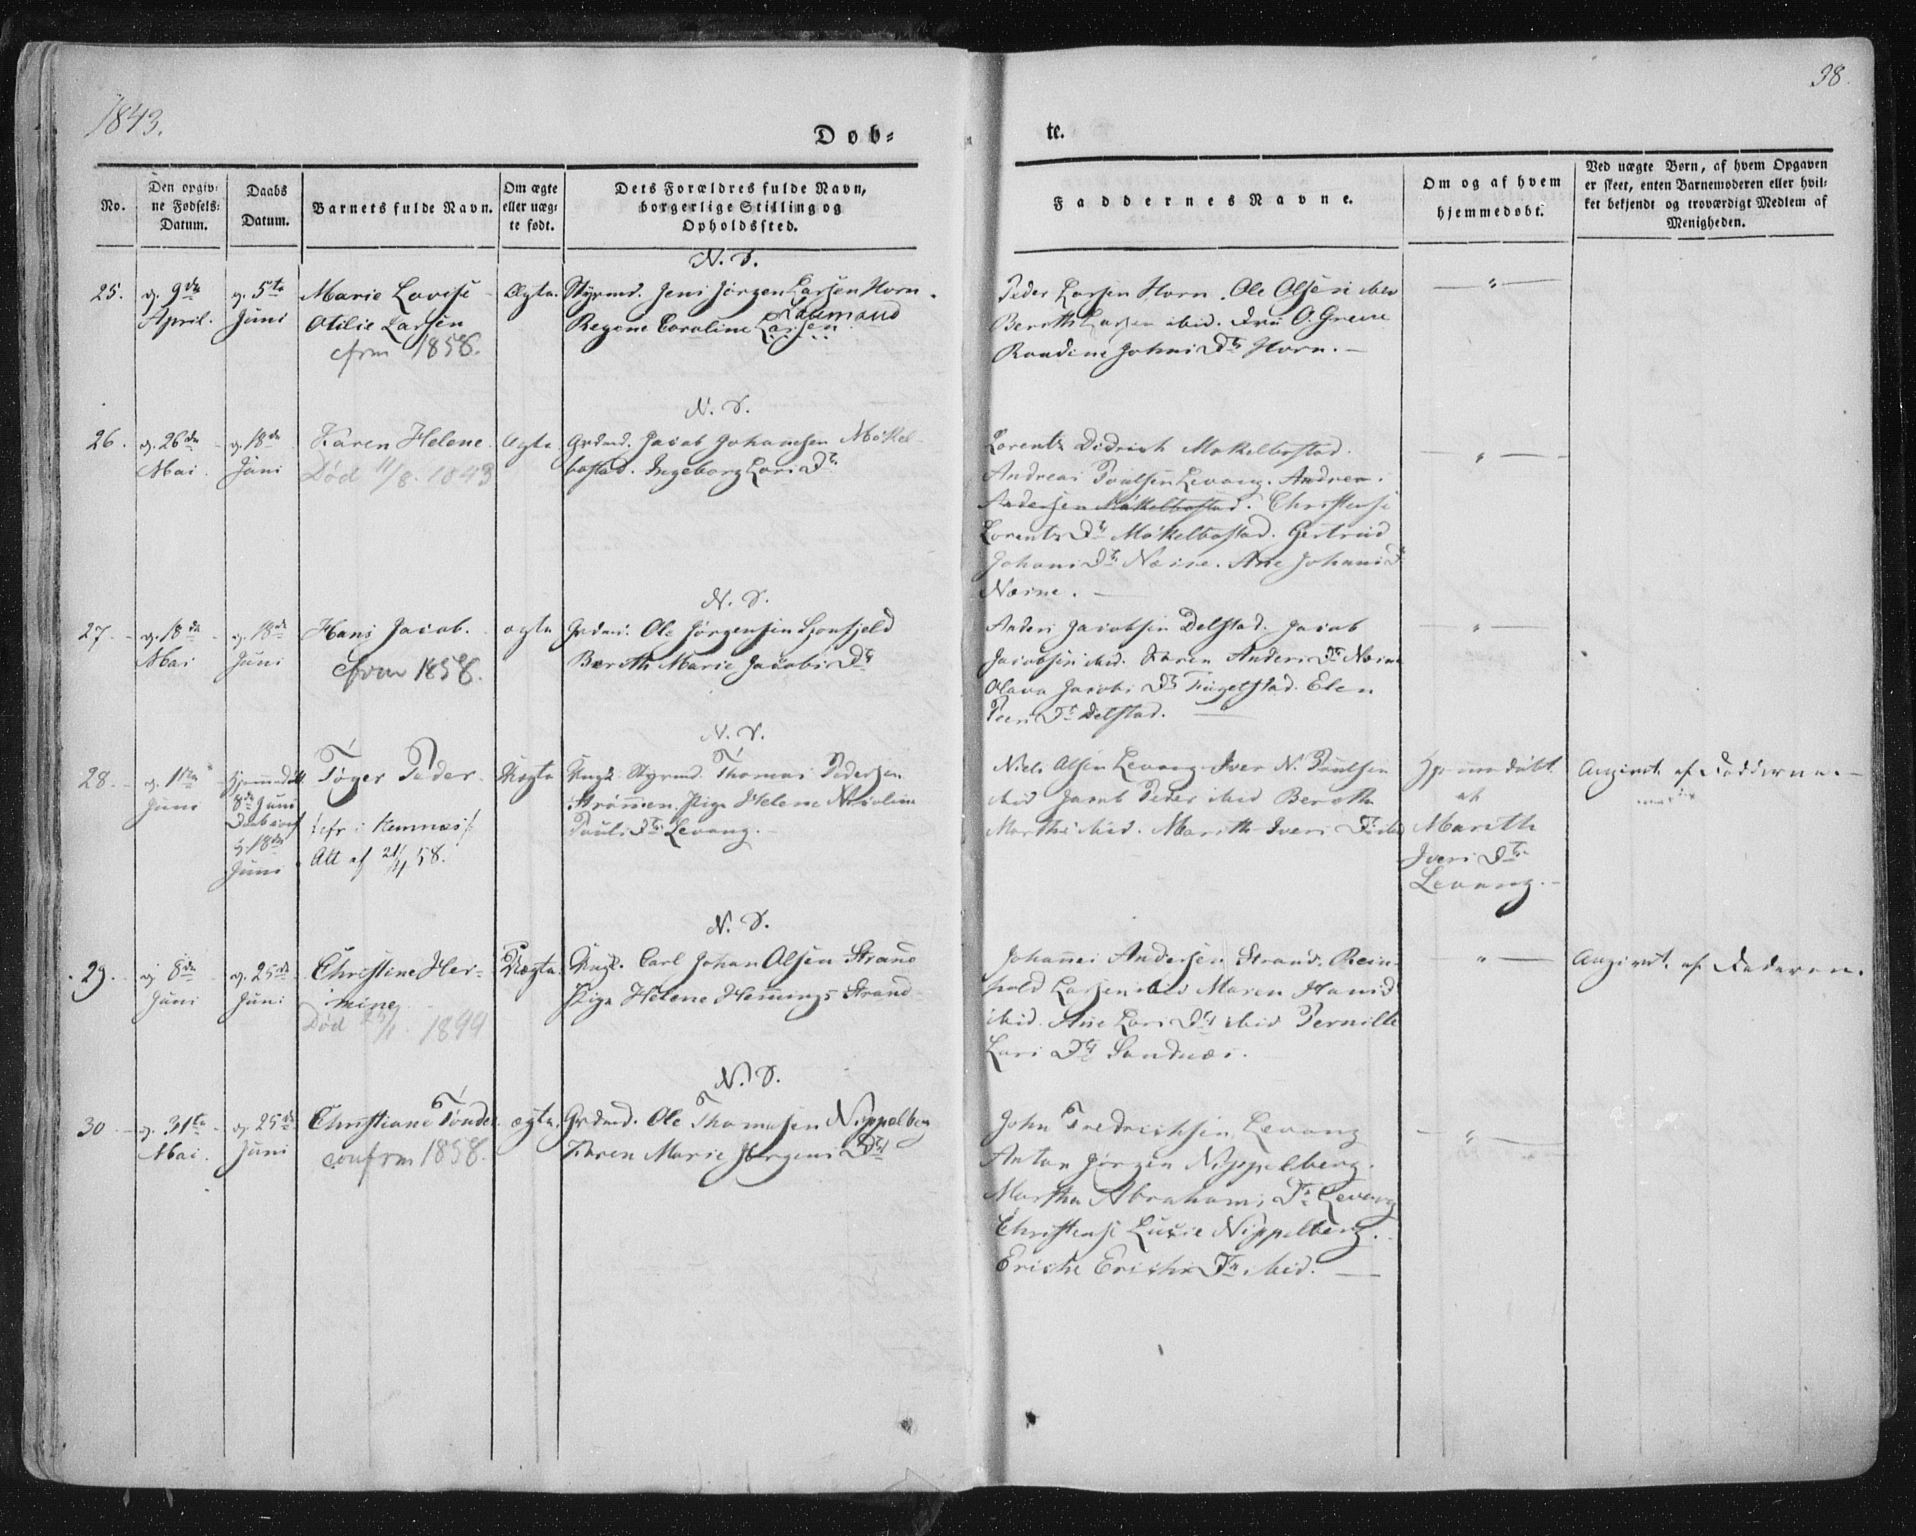 1843.
38.
Døb-
te.
No.
Den opgiv-
ne Fødsels-
Datum.
Daabs
Datum.
Barnets fulde Navn.
Om ægte
eller uæg-
te født.
Dets Forældres fulde Navn,
borgerlige Stilling og
Opholdssted.
Faddernes Navne.
Om og af hvem
hjemmedøbt.
Ved uægte Børn, af hvem Opgaven
er skeet, enten Barnemoderen eller hvil-
ket bekjendt og troværdigt Medlem af
Menigheden.
N. S.
25.
9de
April.
5te
Juni
Marie Lovise
Otilie Larsen
cfrm 1858.
Ægte.
Styrmd. Jens Jørgen Larsen Horn.
Regene Caroline Larsen
Peder Larsen Horn. Ole Olsen ibid
Bereth Larsen ibid. O. Greve
Johns Dtr Horn.
N. S.
26.
26de
Mai.
18de
Juni
Karen Helene
Død 11/8. 1843
Ægte
Grdmd. Jacob Johansen Møkel-
bostad. Ingeborg Lars Dtr.
Lorents Didrich Møkelbostad.
Andreas Poulsen Levang. Andrea.
Andersen Møkelbostad. Christense
Lorents Dtr Møkelbostad. Gertrud
Johans Dtr Næsne. Ane Johans D
Næsne.
N. S.
27.
18de
Mai
18de
Juni
Hans Jacob.
cfrm 1858.
ægte
Grdmd. Ole Jørgensen
Bereth Marie Jacobs Dtr
Anders Jacobsen Delstad. Jacob
Jacobsen ibid. Karen Anders Dtr
Olava Jacobs Dtr Fugelstad. Elen
Peers Dtr Delstad.
N. S.
28.
1ste
Juni
Hjemmedøbt
8de Juni
18de
Juni
Tøger Peder
/cfr i Hemnæs/
Att af 21/4 58.
Uægte
Ungk. Styrmd. Thomas Pedersen
Strømen. Pige Helene Nicoline
Pouls Dtr Levang.
Niels Olsen Levang. Iver N. Poulsen
ibid Jacob Peder ibid Bereth
Marthe ibid. Mareth Ivers Dtr ibid
Hjemmedøbt
af
Mareth
Ivers Dtr.
Levang.
Angivet af Fadderne.
N. S.
29.
8de
Juni
25de
Juni
Christine Her-
mine
Død 1844
Uægte.
Ungk. Carl Johan Olsen Strand
Pige Helene Hemmings Strand
Johannes Andersen Strand. Rein-
hold Larsen ibid Maren Hans D
ibid. Ane Lars Dtr ibid Pernille
Lars Dtr Sandnæs.
Angivet af Faderen.
N. S.
30
31te
Mai.
25de
Juni
Christiane Tønder
confrm 1858.
ægte.
Grdmd. Ole Thomasen Nippelberg
Karen Marie Jørgens Dtr
John Fredrichsen Levang
Anton Jørgen Nippelberg.
Martha Abrahams Dtr Levang
Christense Lucie Nippelberg.
Ericke Erichs Dtr ibid.